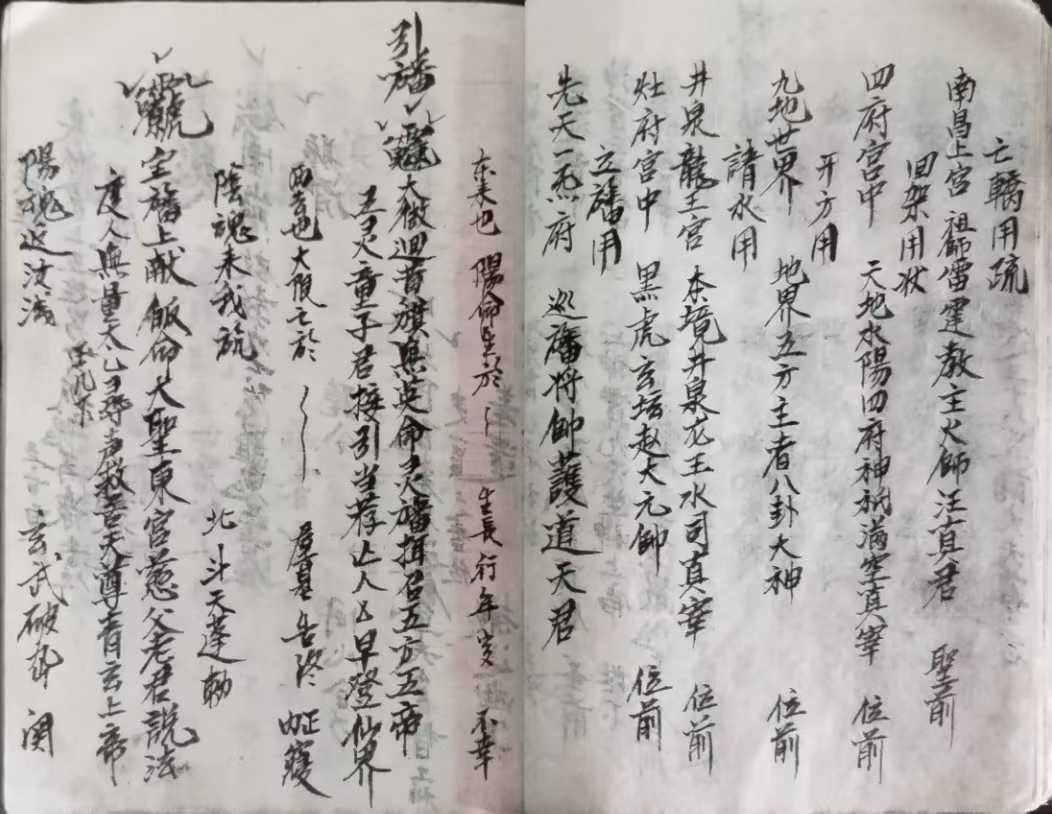 亡轎用疏
南昌上宮 祖師雷霆教主火師汪真君 聖前
回架用状
四府宮中 天地水陽四府神祇满空真宰 位前
开方用
九地世界 地界五方主者八卦大神 位前
請水用
井泉龍王宮 本境井泉龙王水司真宰 位前
灶府宮中 黑虎玄坛赵大元帥 位前
立旛用
先天一炁府 巡旛将帥護道天君
东来也 陽命生於 生長行年 歲 不幸
引旛
大徵迴昔旗無英命灵旛揖召五方五帝
五灵童子君接引当荐亡人 早登仙界
西去也大限亡於 告終
陰魂未我旂 北斗天蓬勅
宝旛上献飯命大聖東宮慈父老君説法
度人無量太乙尋声救苦天尊青玄上帝
陽魂返汝 玄武破